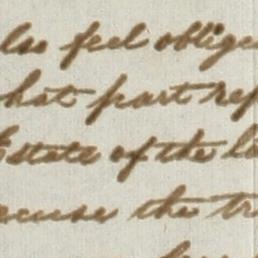 lso feel oblige
hat part rep
Estate of the la
ecuse the tr